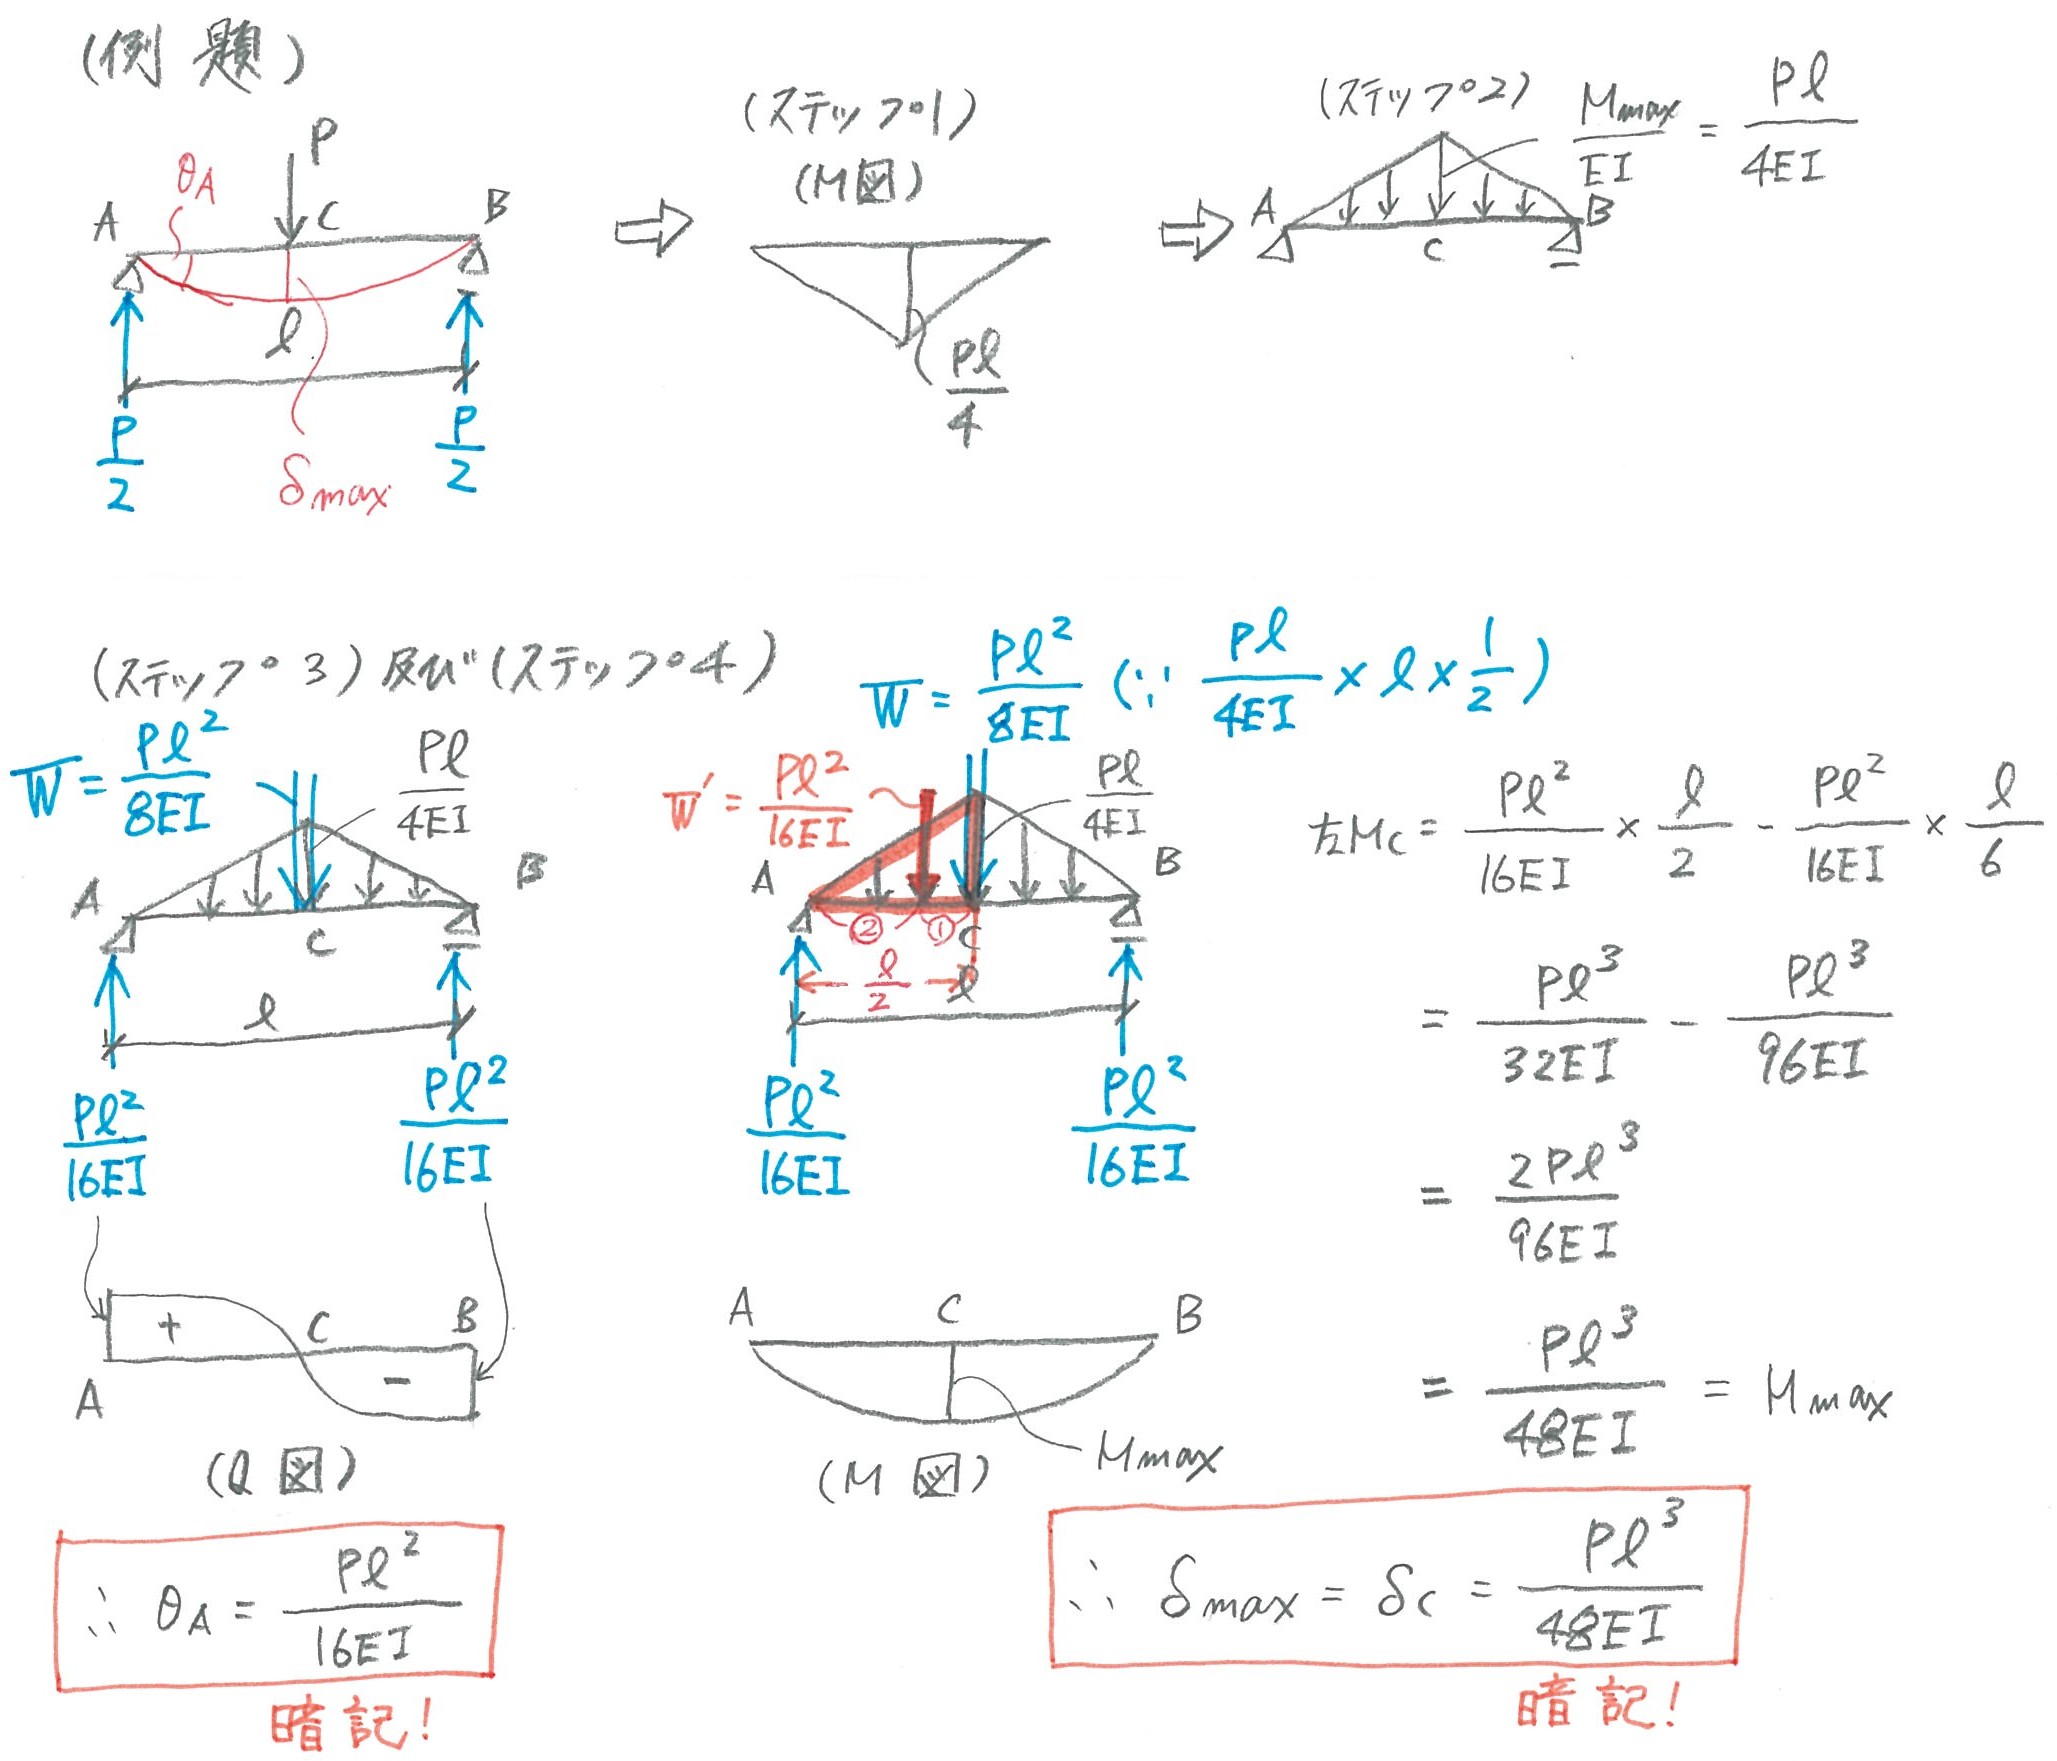 (例題)
P
θA
A
C
B
l
P/2
P/2
δmax
(ステップ1)
(M図)
Pl/4
(ステップ2)
Mmax/EI = Pl/4EI
A
C
B
(ステップ3)及び(ステップ4)
W = Pl²/8EI
Pl/4EI
A
B
C
l
Pl²/16EI
Pl²/16EI
+
C
B
A
−
(Q図)
∴ θA = Pl²/16EI
暗記!
W = Pl²/8EI (∵ Pl/4EI × l × 1/2)
W' = Pl²/16EI
Pl/4EI
A
B
② ① C
l/2
l
Pl²/16EI
Pl²/16EI
A
C
B
Mmax
(M図)
左Mc = Pl²/16EI × l/2 − Pl²/16EI × l/6
= Pl³/32EI − Pl³/96EI
= 2Pl³/96EI
= Pl³/48EI = Mmax
∴ δmax = δc = Pl³/48EI
暗記!